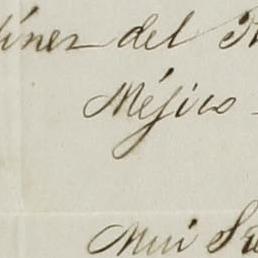 ínez del
Méjico -
Mui